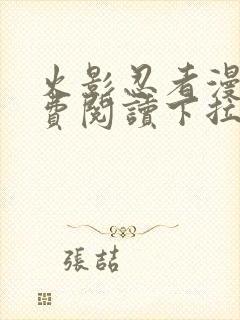 火影忍者漫
費閱讀下拉
張喆